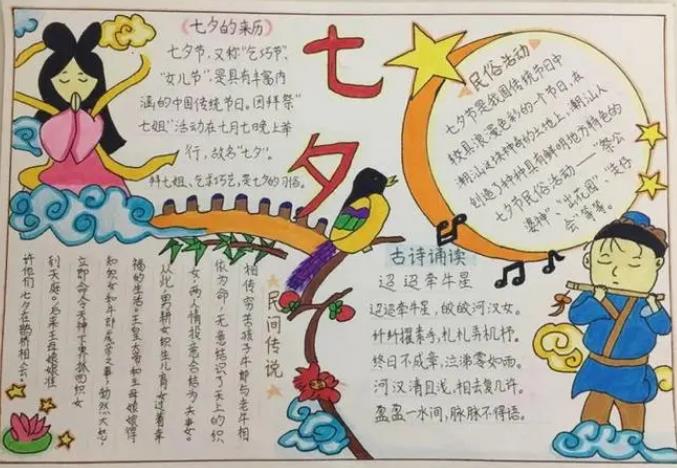 七夕
《七夕的来历》
七夕节,又称“乞巧节”、
“女儿节”,是具有丰富内
涵的中国传统节日。因拜祭“
七姐”活动在七月七晩上举
行,故名“七夕”。
拜七姐、乞求巧艺,是七夕的习俗。
民俗活动
七夕节是我国传统节日中
较具浪漫色彩的一个节日,在
潮汕这块神奇的土地上,潮汕人
创造了种种具有鲜明地方特色的
七夕节民俗活动——“祭公
婆神”、“出花园”、
会等等。
古诗诵读
迢迢牵牛星
迢迢牵牛星,皎皎河汉女。
纤纤擢素手,札札弄机杼。
终日不成章,泣涕零如雨。
河汉清且浅,相去复几许。
盈盈一水间,脉脉不得语。
民间传说
相传穷苦孩子牛郎与老牛相
依为命,无意结识了天上的织
女,两人情投意合结为夫妻。
从此,男耕女织生儿育女过着幸
福的生活。王皇大帝和王母娘娘得
知织女和牛郎成亲之事,勃然大怒,
立即命令天神下界抓回织女
到天庭。后来王母娘娘准
许他们七夕在鹊桥相会。